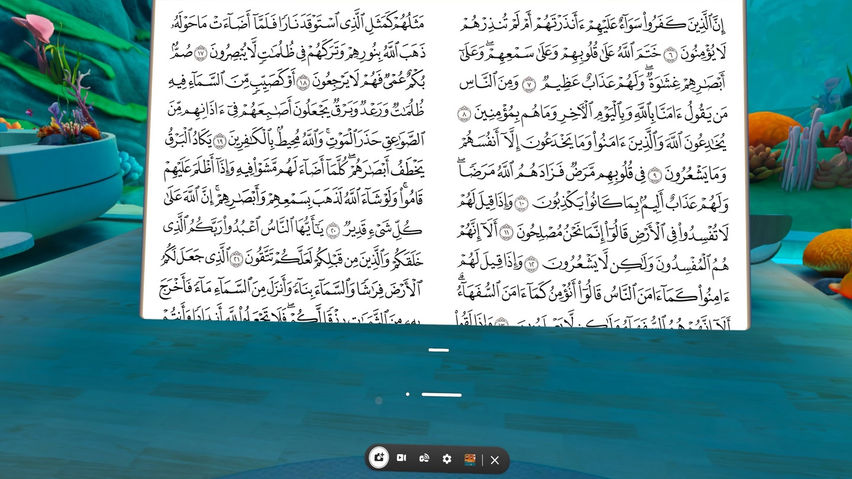 إِنَّ ٱلَّذِينَ كَفَرُوا۟ سَوَآءٌ عَلَيْهِمْ ءَأَنذَرْتَهُمْ أَمْ لَمْ تُنذِرْهُمْ
لَا يُؤْمِنُونَ ٦ خَتَمَ ٱللَّهُ عَلَىٰ قُلُوبِهِمْ وَعَلَىٰ سَمْعِهِمْ ۖ وَعَلَىٰٓ
أَبْصَٰرِهِمْ غِشَٰوَةٌ ۖ وَلَهُمْ عَذَابٌ عَظِيمٌ ٧ وَمِنَ ٱلنَّاسِ
مَن يَقُولُ ءَامَنَّا بِٱللَّهِ وَبِٱلْيَوْمِ ٱلْءَاخِرِ وَمَا هُم بِمُؤْمِنِينَ ٨
يُخَٰدِعُونَ ٱللَّهَ وَٱلَّذِينَ ءَامَنُوا۟ وَمَا يَخْدَعُونَ إِلَّآ أَنفُسَهُمْ
وَمَا يَشْعُرُونَ ٩ فِى قُلُوبِهِم مَّرَضٌ فَزَادَهُمُ ٱللَّهُ مَرَضًا ۖ
وَلَهُمْ عَذَابٌ أَلِيمٌۢ بِمَا كَانُوا۟ يَكْذِبُونَ ١٠ وَإِذَا قِيلَ لَهُمْ
لَا تُفْسِدُوا۟ فِى ٱلْأَرْضِ قَالُوٓا۟ إِنَّمَا نَحْنُ مُصْلِحُونَ ١١ أَلَآ إِنَّهُمْ
هُمُ ٱلْمُفْسِدُونَ وَلَٰكِن لَّا يَشْعُرُونَ ١٢ وَإِذَا قِيلَ لَهُمْ
ءَامِنُوا۟ كَمَآ ءَامَنَ ٱلنَّاسُ قَالُوٓا۟ أَنُؤْمِنُ كَمَآ ءَامَنَ ٱلسُّفَهَآءُ ۗ
أَلَآ إِنَّهُمْ هُمُ ٱلسُّفَهَآءُ وَلَٰكِن لَّا يَعْلَمُونَ ١٣ وَإِذَا لَقُوا۟
مَثَلُهُمْ كَمَثَلِ ٱلَّذِى ٱسْتَوْقَدَ نَارًا فَلَمَّآ أَضَآءَتْ مَا حَوْلَهُۥ
ذَهَبَ ٱللَّهُ بِنُورِهِمْ وَتَرَكَهُمْ فِى ظُلُمَٰتٍ لَّا يُبْصِرُونَ ١٧ صُمٌّۢ
بُكْمٌ عُمْىٌ فَهُمْ لَا يَرْجِعُونَ ١٨ أَوْ كَصَيِّبٍ مِّنَ ٱلسَّمَآءِ فِيهِ
ظُلُمَٰتٌ وَرَعْدٌ وَبَرْقٌ يَجْعَلُونَ أَصَٰبِعَهُمْ فِىٓ ءَاذَانِهِم مِّنَ
ٱلصَّوَٰعِقِ حَذَرَ ٱلْمَوْتِ ۚ وَٱللَّهُ مُحِيطٌۢ بِٱلْكَٰفِرِينَ ١٩ يَكَادُ ٱلْبَرْقُ
يَخْطَفُ أَبْصَٰرَهُمْ ۖ كُلَّمَآ أَضَآءَ لَهُم مَّشَوْا۟ فِيهِ وَإِذَآ أَظْلَمَ عَلَيْهِمْ
قَامُوا۟ ۚ وَلَوْ شَآءَ ٱللَّهُ لَذَهَبَ بِسَمْعِهِمْ وَأَبْصَٰرِهِمْ ۚ إِنَّ ٱللَّهَ عَلَىٰ
كُلِّ شَىْءٍ قَدِيرٌ ٢٠ يَٰٓأَيُّهَا ٱلنَّاسُ ٱعْبُدُوا۟ رَبَّكُمُ ٱلَّذِى
خَلَقَكُمْ وَٱلَّذِينَ مِن قَبْلِكُمْ لَعَلَّكُمْ تَتَّقُونَ ٢١ ٱلَّذِى جَعَلَ لَكُمُ
ٱلْأَرْضَ فِرَٰشًا وَٱلسَّمَآءَ بِنَآءً وَأَنزَلَ مِنَ ٱلسَّمَآءِ مَآءً فَأَخْرَجَ
بِهِۦ مِنَ ٱلثَّمَرَٰتِ رِزْقًا لَّكُمْ ۖ فَلَا تَجْعَلُوا۟ لِلَّهِ أَندَادًا وَأَنتُمْ